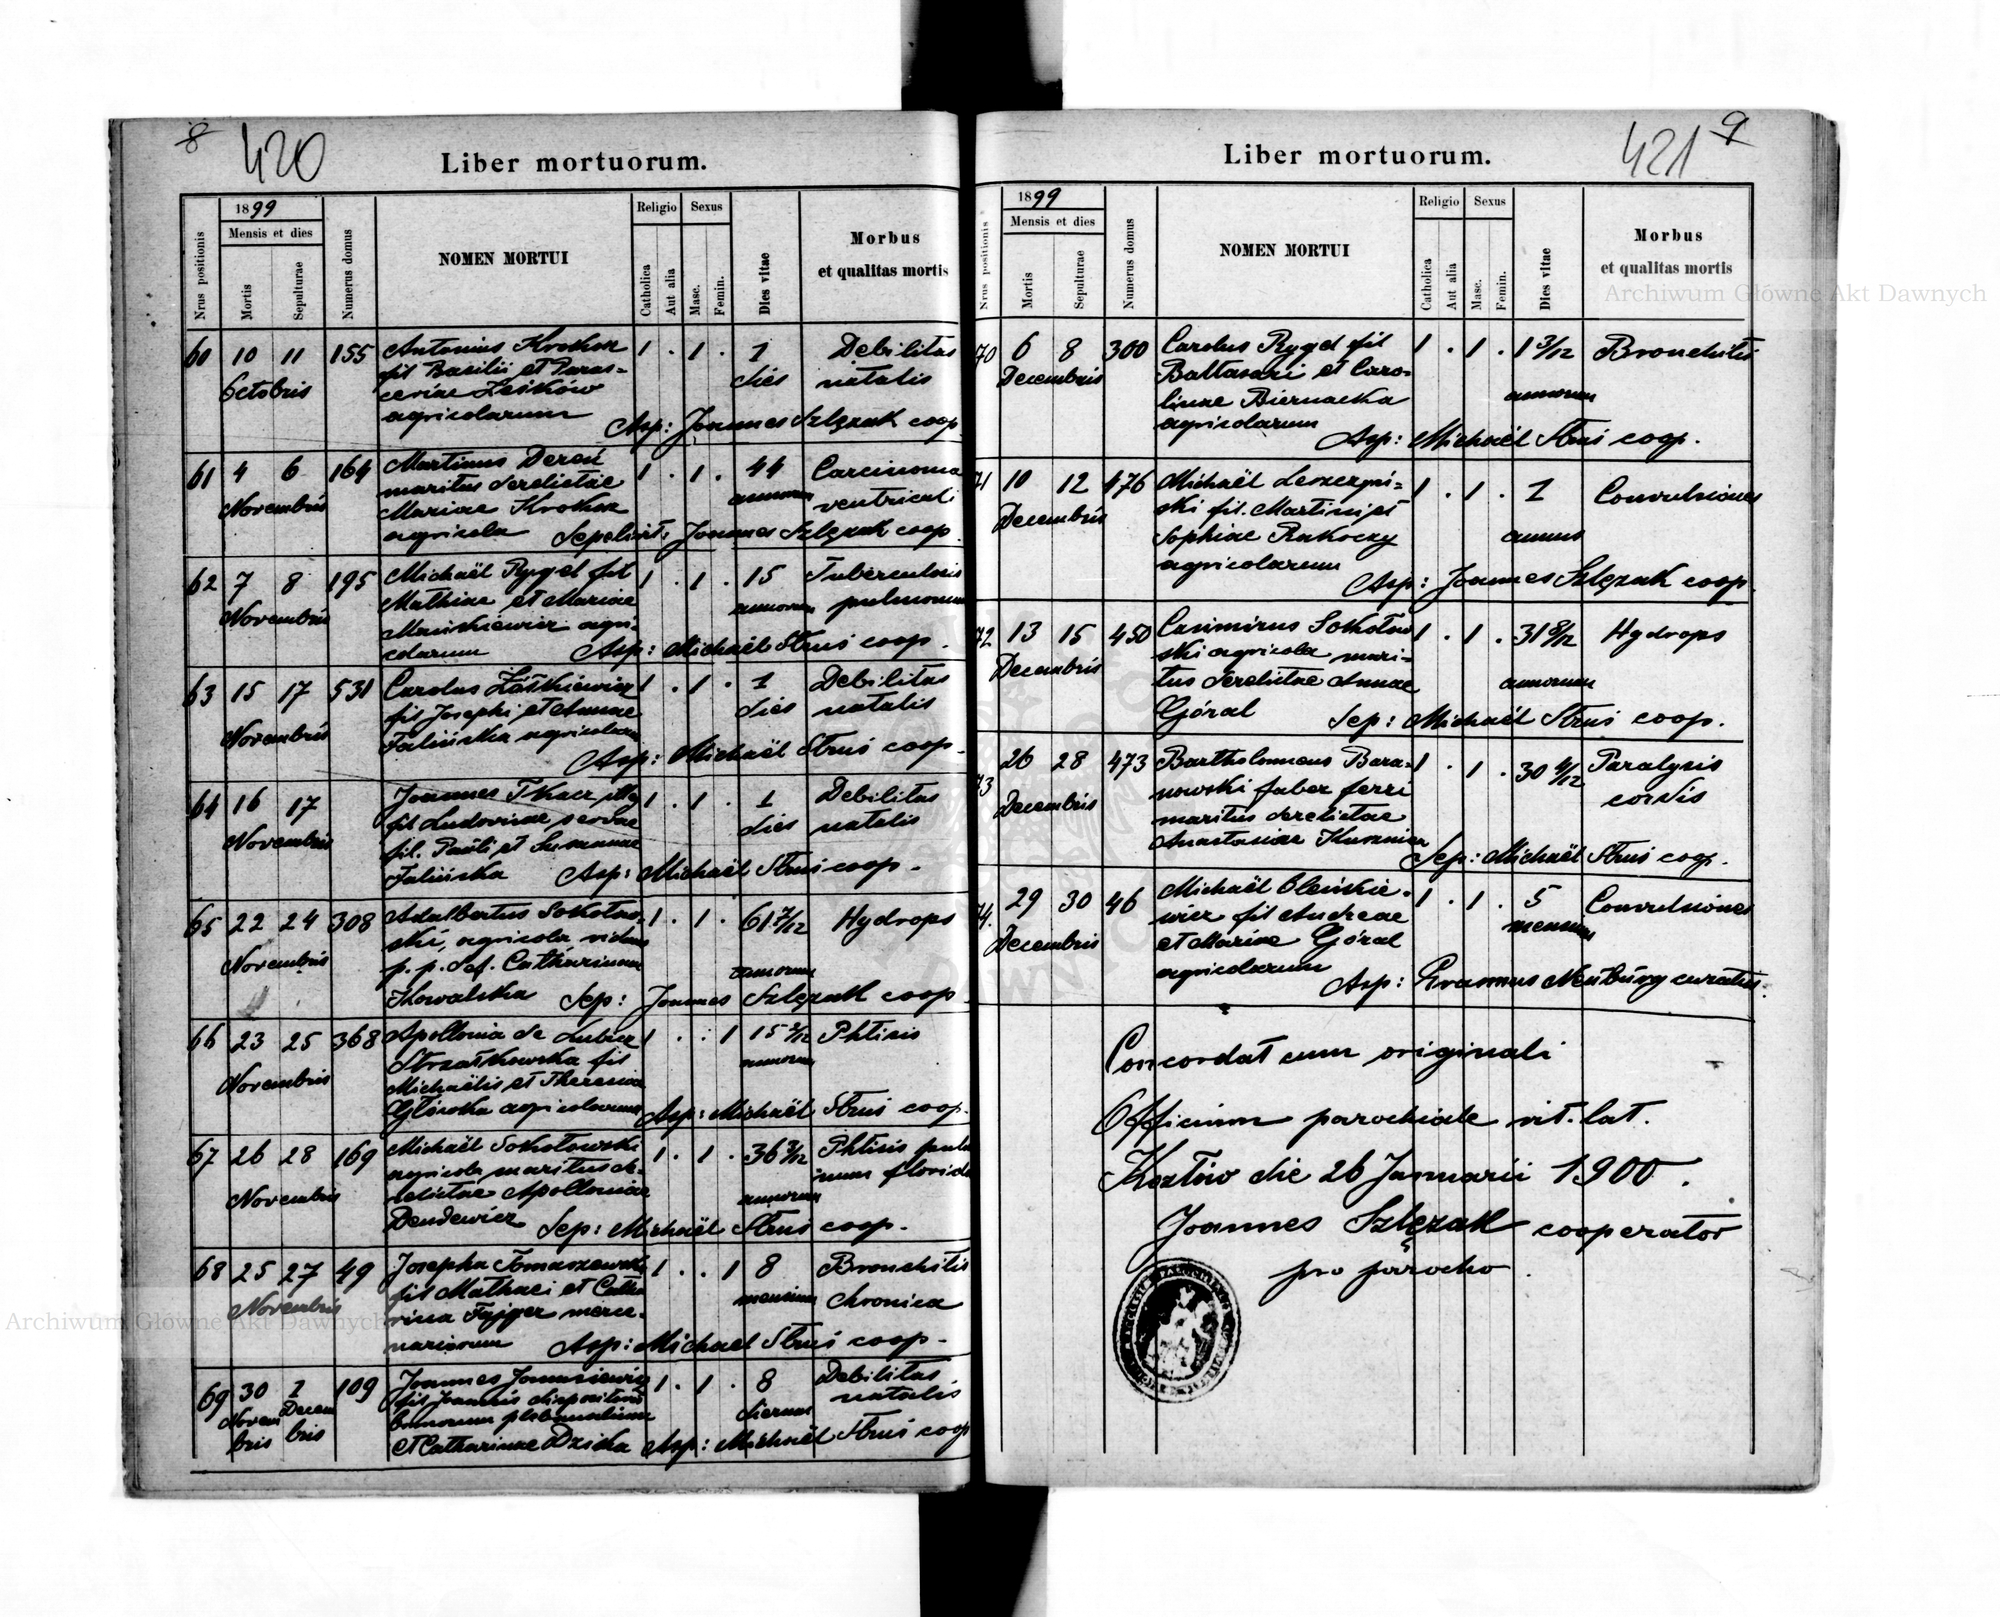 8
420
Liber mortuorum.
Nrus positionis
1899
Mensis et dies
Mortis
Sepulturae
Numerus domus
NOMEN MORTUI
Religio
Catholica
Aut alia
Sexus
Masc.
Femin.
Dies vitae
Morbus
et qualitas mortis
60 10 11 155 Antonius Krokosz 1 . 1 . 1 Debilitas
Octobris fil Basilii et Paras= dies natalis
ceviae
agricolarum Asp: Joannes Szlęzak coop
61 4 6 164 Martinus Dereń 1 . 1 . 44 Carcinoma
Novembris maritus derelictae annorum ventriculi
Mariae Krokosz
agricola Sepelivit: Joannes Szlęzak coop.
62 7 8 195 Michaël Rygel fil 1 . 1 . 15 Tuberculosis
Novembris Mathiae et Mariae annorum pulmonum
agri=
colarum Asp: Michaël Struś coop.
63 15 17 531 Carolus 1 . 1 . 1 Debilitas
Novembris fil Josephi et Annae dies natalis
Falińska agricolarum
Asp: Michaël Struś coop.
64 16 17 Joannes Tkacz illeg 1 . 1 . 1 Debilitas
Novembris fil Ludovicae servae dies natalis
fil. Pauli et Susannae
Falińska Asp: Michaël Struś coop.
65 22 24 308 Adalbertus Sokołow= 1 . 1 . 61 7/12 Hydrops
Novembris ski, agricola viduus
p. p. def. Catharinam annorum
Kowalska Sep: Joannes Szlęzak coop
66 23 25 368 Apollonia de Lubicz 1 . . 1 15 2/12 Phtisis
Novembris Strzałkowska fil annorum
Michaëlis et Theresiae
Głowska agricolarum Asp: Michaël Struś coop.
67 26 28 169 Michaël Sokołowski 1 . 1 . 36 3/12 Phtisis pulmo
Novembris agricola maritus de= annorum num florida
relictae Apolloniae
Dendewicz Sep: Michaël Struś coop.
68 25 27 49 Josepha Tomaszewska 1 . . 1 8 Bronchitis
Novembris fil Mathaei et Catha mensium chronica
rina Fajger merce=
nariorum Asp: Michaël Struś coop.
69 30 1 109 Joannes Janusiewicz 1 . 1 . 8 Debilitas
Novem Decem fil Joannis dispositoris dierum natalis
bris bris bonorum plebanalium
et Catharinae Dzicka Asp: Michaël Struś coop
421
9
Liber mortuorum.
Nrus positionis
1899
Mensis et dies
Mortis
Sepulturae
Numerus domus
NOMEN MORTUI
Religio
Catholica
Aut alia
Sexus
Masc.
Femin.
Dies vitae
Morbus
et qualitas mortis
70 6 8 300 Carolus Rygel fil 1 . 1 . 1 3/12 Bronchitis
Decembris Baltasari et Caro= annorum
linae Biernacka
agricolarum Asp: Michaël Struś coop.
71 10 12 176 Michaël Leszczyń= 1 . 1 . 1 Convulsiones
Decembris ski fil. Martini et annus
Sophiae Rakoczy
agricolarum Asp: Joannes Szlęzak coop.
72 13 15 450 Casimirus Sokołow 1 . 1 . 31 8/12 Hydrops
Decembris ski agricola mari=
tus derelictae Annae annorum
Góral Sep: Michaël Struś coop.
73 26 28 473 Bartholomeus Bara= 1 . 1 . 30 4/12 Paralysis
Decembris nowski faber ferri cordis
maritus derelictae
Anastasiae Kusznier Sep: Michaël Struś coop.
74. 29 30 46 Michaël Oleńkie= 1 . 1 . 5 Convulsiones
Decembris wicz fil Andreae mensium
et Mariae Góral
agricolarum Asp: Erasmus Neuburg curatus.
Concordat cum originali
Officium parochiale rit. lat.
Kozłów die 26 Januarii 1900.
Joannes Szlęzak cooperator
pro parocho
Archiwum Główne Akt Dawnych
Archiwum Główne Akt Dawnych